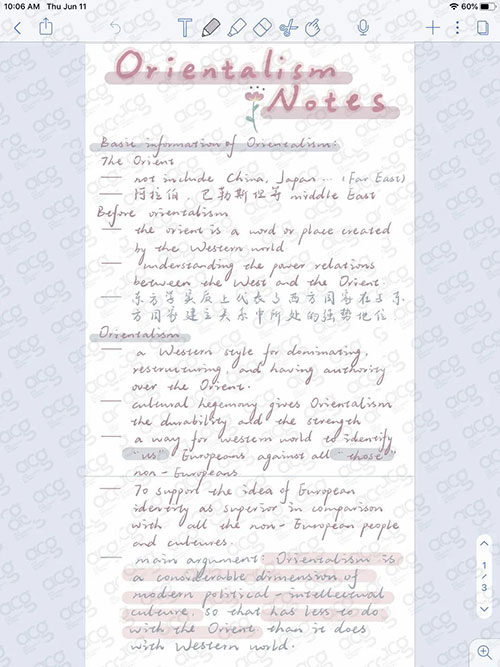 10:06 AM Thu Jun 11
60%
Orientalism
Notes
Basic information of Orientalism.
The Orient
— not include China, Japan... (Far East)
— 阿拉伯、巴勒斯坦等 middle East
Before orientalism
— the orient is a word or place created
by the Western world
— understanding the power relations
between the West and the Orient.
— 东方学实质上代表了西方国家在与东
方国家建立关系中所处的强势地位
Orientalism
— a Western style for dominating,
restructuring, and having authority
over the Orient.
— cultural hegemony gives Orientalism
the durability and the strength
— a way for western world to identify
"us" Europeans against all "those"
non-Europeans
— To support the idea of European
identity as superior in comparison
with all the non-European people
and cultures.
— main argument: Orientalism is
a considerable dimension of
modern political-intellectual
culture, so that has less to do
with the Orient than it does
with Western world.
1
/
3
acg